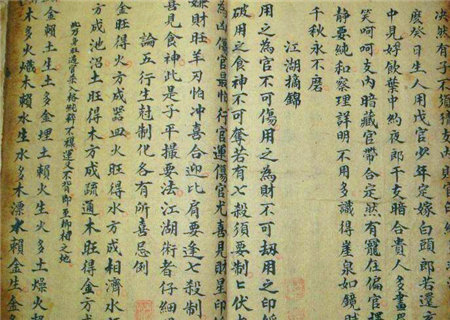 决然有子不須傷支
癸日生人用戊官少年定嫁白頭郎若還
中見婷飲葉中約夜郎干支暗合貴人多
笑呵呵支內暗藏官帶合定然有寵在偏官
静要純和察理詳明不用多識得崖泉如鏡
千秋永不磨
江湖摘錦
用之為官不可傷用之為財不可刼用之印
破用之食神不可奪若有七殺須要制
為凶傷官最怕行官運傷官尤喜見財星印
嫌財旺羊刃怕冲喜合迎比肩要逢七殺制
喜見食神此是子平撮要法江湖術者仔細
論五行生尅制化各有所喜忌例
金旺得火方成器皿火旺得水方成相濟水
方成池沼土旺得木方成疏通木旺得金方成
入格 不穩運又不背即至卿相之地
金賴土生土多金埋土賴火生火多土燥火
木多火熾木賴水生水多木漂水賴金生金